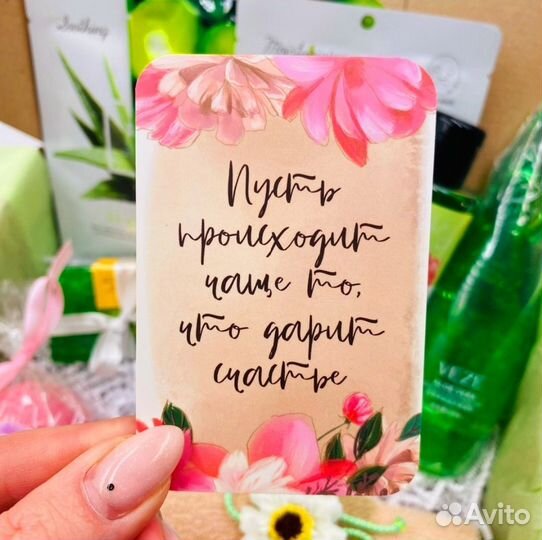 Soothing
Пусть
происходит
чаще то,
что дарит
счастье
VEZE
Avito